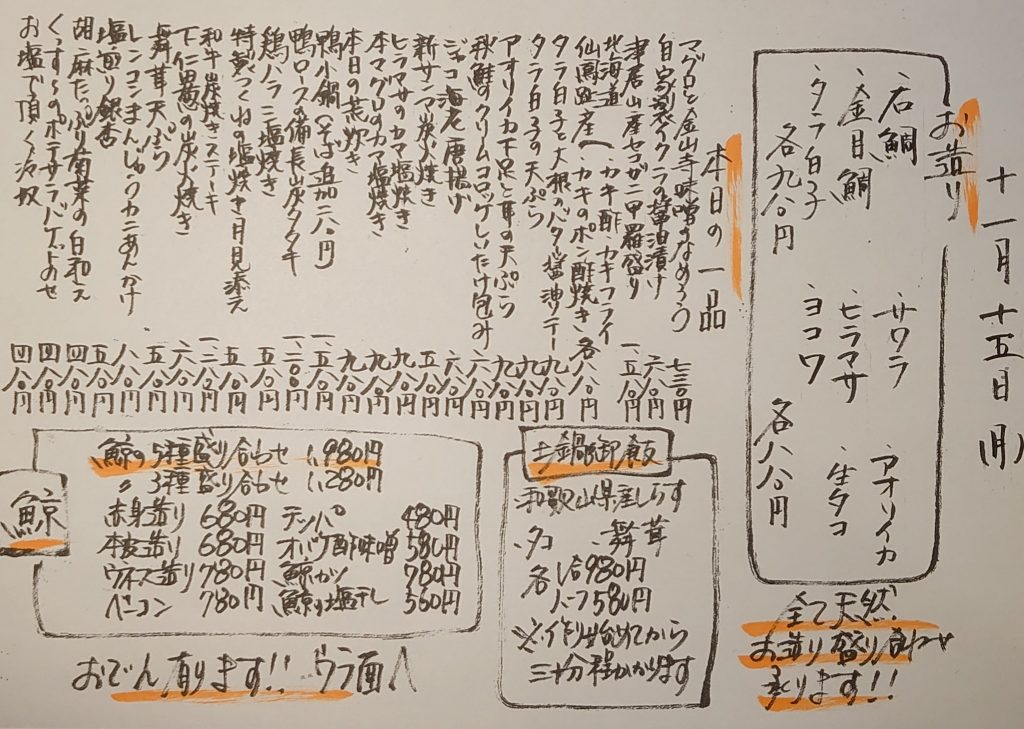 十一月十五日(月)
お造り
石鯛
金目鯛
タラ白子
各九八〇円
サワラ
ヒラマサ
ヨコワ
アオリイカ
生タコ
各八八〇円
全て天然
お造り盛り合わせ
承ります!!
本日の一品
マグロと金山寺味噌のなめろう 七三〇円
自家製イクラの醤油漬け 六八〇円
津居山産セコガニ甲羅盛り 一、五八〇円
北海道
仙鳳趾産へ カキ酢・カキフライ
・カキのポン酢焼き 各八八〇円
タラ白子と大根のバタ醤油ソテー 九八〇円
タラ白子の天ぷら 九八〇円
アオリイカ下足と耳の天ぷら 九八〇円
秋鮭のクリームコロッケしいたけ包み 六八〇円
ジャコ海老唐揚げ 六八〇円
新サンマ炭火焼き 五八〇円
ヒラマサのカマ塩焼き 九八〇円
本マグロのカマ塩焼き 九八〇円
本日の荒炊き 九八〇円
鴨小鍋(そば追加二八〇円) 一、五八〇円
鴨ロースの備長炭タタキ 一、二八〇円
鶏ハラミ塩焼き 五八〇円
特製つくねの塩焼き月見添え 五八〇円
和牛炭焼きステーキ 一、二八〇円
下仁田葱の炭火焼き 六八〇円
舞茸天ぷら 五八〇円
レンコンまんじゅうカニあんかけ 八八〇円
塩煎り銀杏 五八〇円
胡麻たっぷり菊菜の白和え 四八〇円
くずし のポテサラバゲットのせ 四八〇円
お塩で頂く冷奴 四八〇円
土鍋御飯
・和歌山県産しらす
・タコ ・舞茸
各1合980円
ハーフ580円
※作り始めてから
三十分程かかります
鯨
鯨の5種盛り合わせ 1,980円
〃 3種盛り合わせ 1,280円
赤身造り 680円 テッパ 480円
本皮造り 680円 オバケ酢味噌 580円
ウネス造り 780円 鯨カツ 780円
ベーコン 780円 鯨の塩干し 560円
おでん有ります!! ウラ面へ